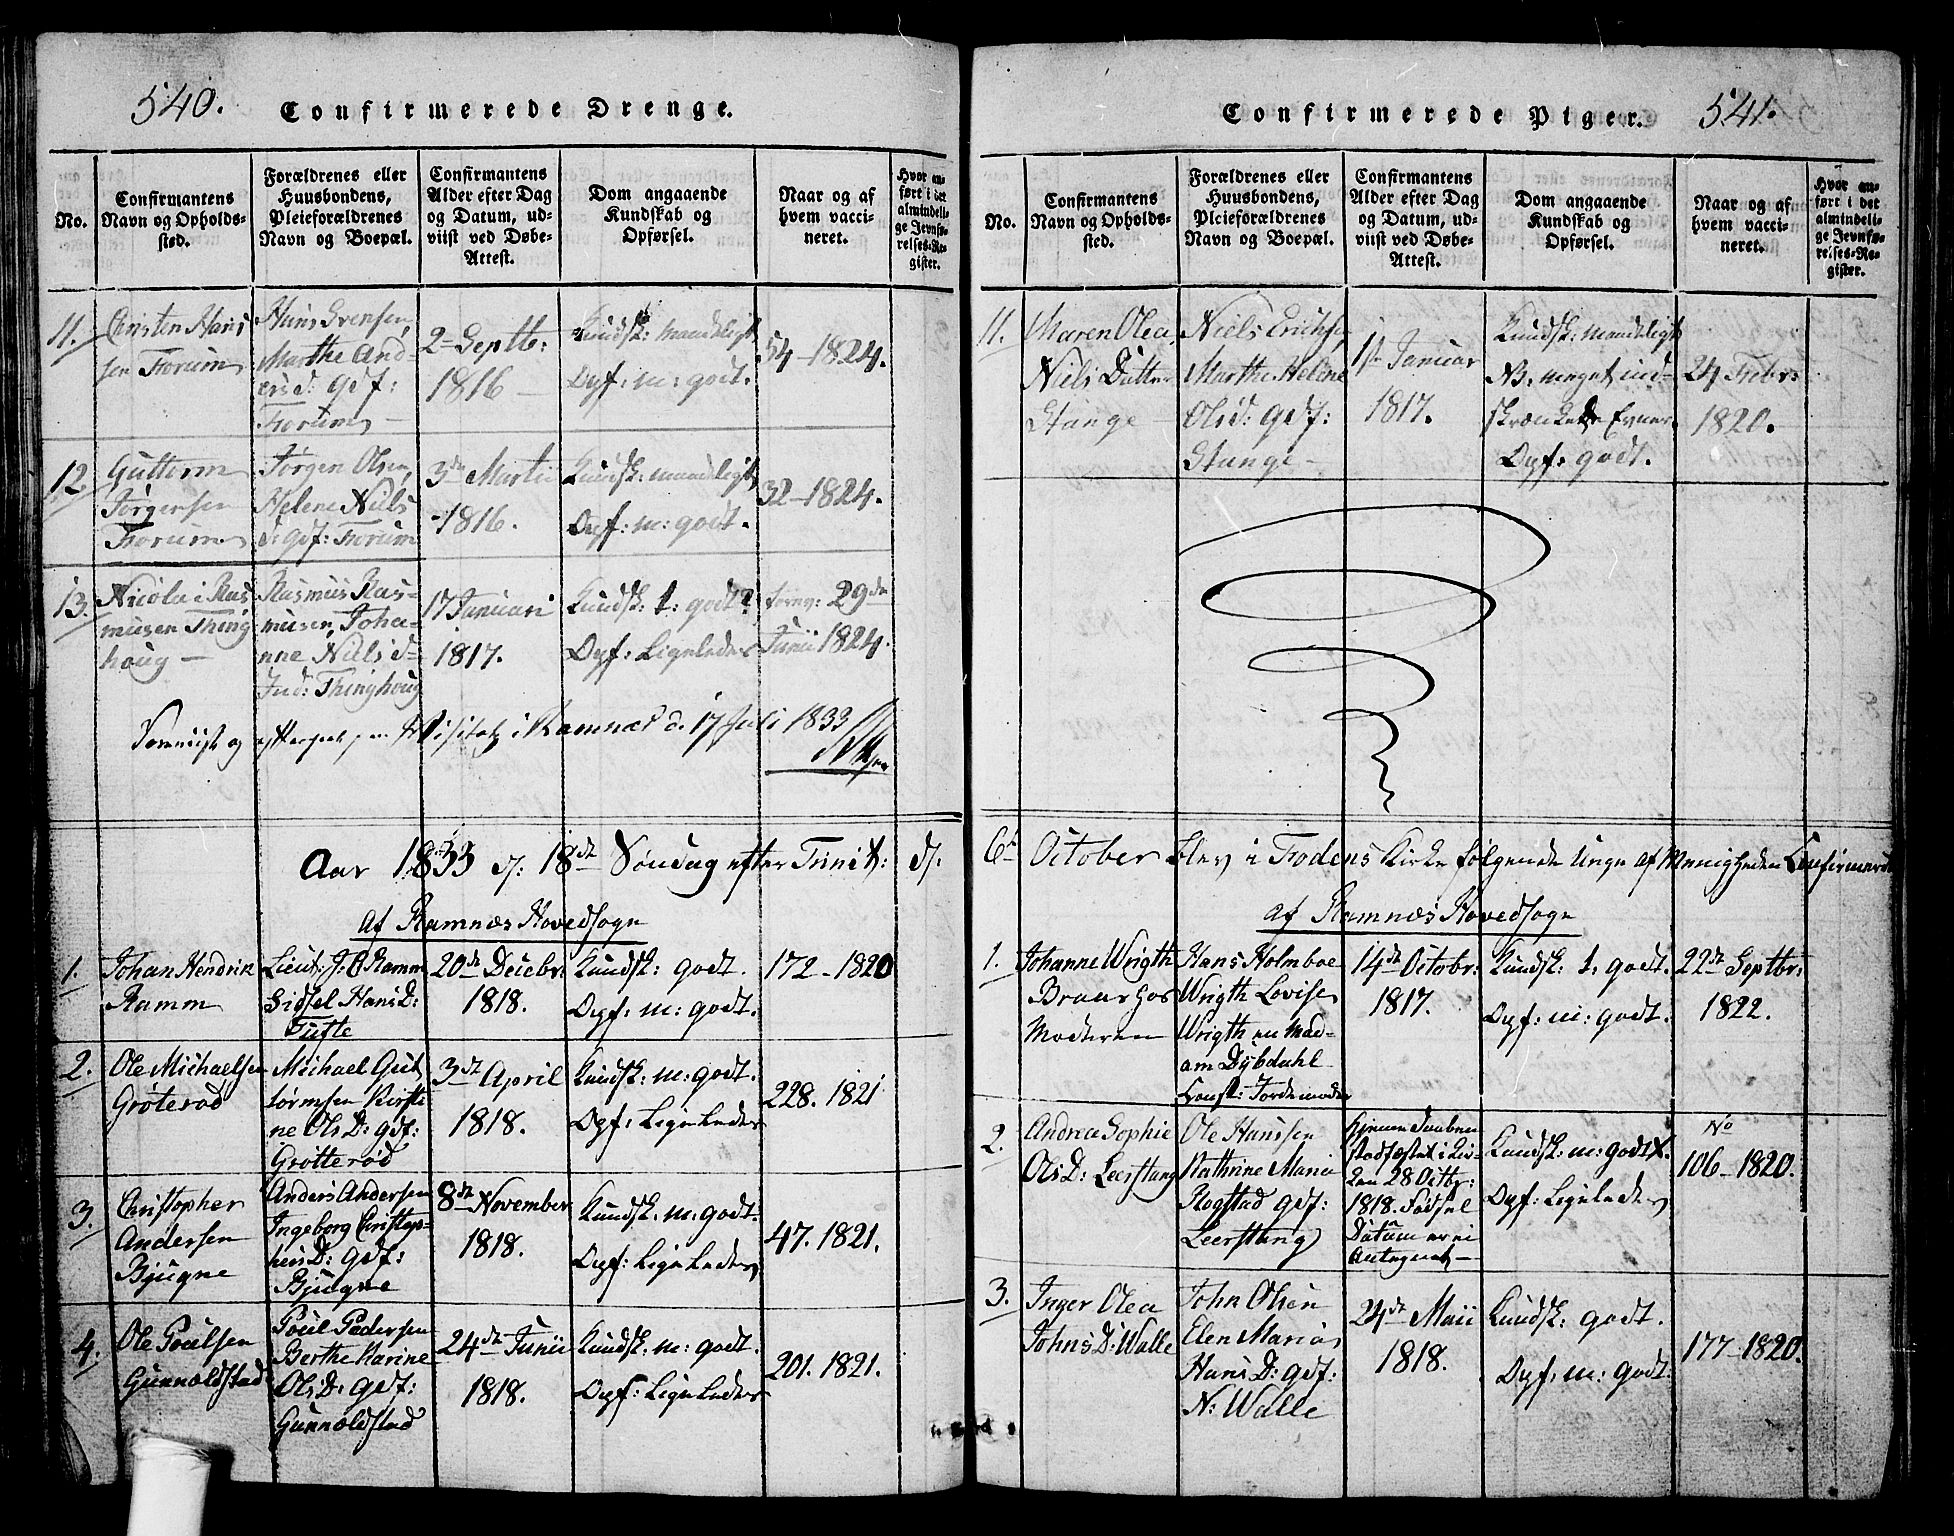 540.
Confirmerede Drenge.
No.
Confirmantens
Navn og Opholds-
sted.
Forældrenes eller
Huusbondens,
Pleieforældrenes
Navn og Boepæl.
Confirmantens
Alder efter Dag
og Datum, ud-
viist ved Døbe-
Attest.
Dom angaaende
Kundskab og
Opførsel.
Naar og af
hvem vacci-
neret.
Hvor an-
ført i det
almindeli-
ge Jevnfø-
relses-Re-
gister.
11.
Christen Hans
sen Forum
Hans Svensen,
Marthe And-
ersd: gdf:
Forum
2 Septbr:
1816
Kundsk: maadeligt
Opf: m: godt.
54-1824.
12.
Guttorm
Jørgensen
Forum
Jørgen Olsen,
Helene Niels
d: gdf: Forum
3de Martii
1816.
Kundsk: maadeligt
Opf: m: godt.
32-1824.
13.
Nicolai Ras
musen Thing
houg
Rasmus Ras-
musen, Joha-
nne Nielsd
Ind: Thinghoug
17 Januari
1817.
Kundsk: t: godt
Opf: Ligeledes
29de
Junii 1824.
i Ramnæs d. 17 Juli 1833
Aar 1833 d: 18de Søndag efter Trinit: d:
af Ramnæs Hovedsogn
1.
Johan Hendrik
Ramm
Lieut: J: C Ramm
Sidsel Hans D:
Tufte
20de Decbr:
1818.
Kundsk: godt.
Opf: m: godt.
172-1820
2.
Ole Michaelsen
Grøterød
Michael Gut
tormsen Kirsti
ne Ols D: gdf:
Grøtterød
3de April
1818.
Kundsk: m: godt.
Opf: Ligeledes
228. 1821
3.
Christopher
Andersen
Bjugne
Anders Andersen
Ingeborg Christop-
hers D: gdf:
Bjugne
8de November
1818.
Kundsk: m: godt:
Opf: Ligeledes
47. 1821.
4.
Ole Poulsen
Gunnoldstad
Poul Pedersen
Berthe Karine
Ols D: gdf:
Gunnoldstad
24de Junii
1818.
Kundsk: m: godt.
Opf: Ligeledes
201. 1821.
Confirmerede Piger.
541.
No.
Confirmantens
Navn og Opholds-
sted.
Forældrenes eller
Huusbondens,
Pleieforældrenes
Navn og Boepæl.
Confirmantens
Alder efter Dag
og Datum, ud-
viist ved Døbe-
Attest.
Dom angaaende
Kundskab og
Opførsel.
Naar og af
hvem vacci-
neret.
Hvor an-
ført i det
almindeli-
ge Jevnfø-
relses-Re-
gister.
11.
Maren Olea
Niels Datter
Stange
Niels Erichs,
Marthe Helene
Olsd: gdf:
Stange
1ste Januar
1817.
Kundsk: maadeligt
NB. meget ind-
skrænkede Evner
Opf: godt.
24 Febr:
1820.
6te October blev i Fodens Kirke følgende Unge af Menigheden Confirmered
af Ramnæs Hovedsogn
1.
Johanne Wrigth
Braar hos
Moderen
Hans Holmboe
Wrigth Lovise
Wrigth en Mad-
am Dybdahl
Const: Jordemoder
14de Octobr:
1817.
Kundsk: t: godt.
Opf: m: godt.
22de Septbr:
1822.
2.
Andrea Sophie
Ols D: Leerstang
Ole Hanssen
Kathrine Maria
Rogstad gdf:
Leerstang
Hjemme Daaben
stadfæstet i Kir-
ken 28 Octbr:
1818. Fødsel
Datum er ei
Antegnet
Kundsk: m: godt.
Opf: Ligeledes
No
106-1820.
3.
Inger Olea
Johns D: Walle
John Olsen
Elen Maria
Hans D: gdf:
N: Walle
24de Maii
1818.
Kundsk: godt.
Opf: m: godt:
177-1820.